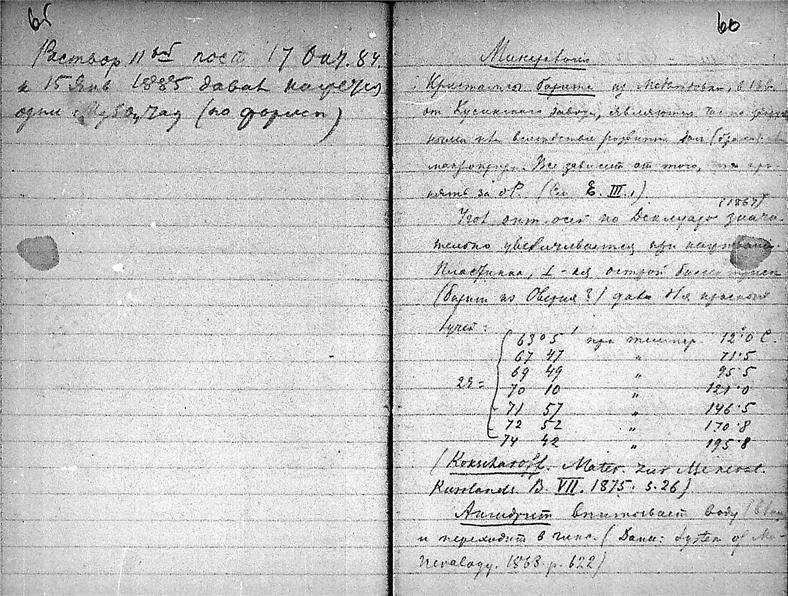 65
Раствор 11ый пост 17 Окт. 84.
и 15 Янв 1885 давал
одни (по формѣ)
66
Минералогія
Кристаллы барита из въ
от Кусинскаго завода, являются
развитія
Все зависит от того, что при-
нять за oP. (См. E. III.,)
(1867)
Угол опт. осей по Деклуазо значи-
тельно увеличивается при нагрѣваніи.
Пластинка, ⊥-ая острой биссектрисѣ
(барит из Оверня?) дала для красных
лучей:
2E = 63° 5' при темпер. 12°.0 C.
67 47 " 71.5
69 49 " 95.5
70 10 " 121.0
71 57 " 146.5
72 52 " 170.8
74 42 " 195.8
(Kokscharoff. Mater. zur Mineral.
Russlands. B. VII. 1875. S. 26)
Ангидрит впитывает воду
и переходит в гипс. (Dana: System of Mi-
neralogy. 1868. p. 622)